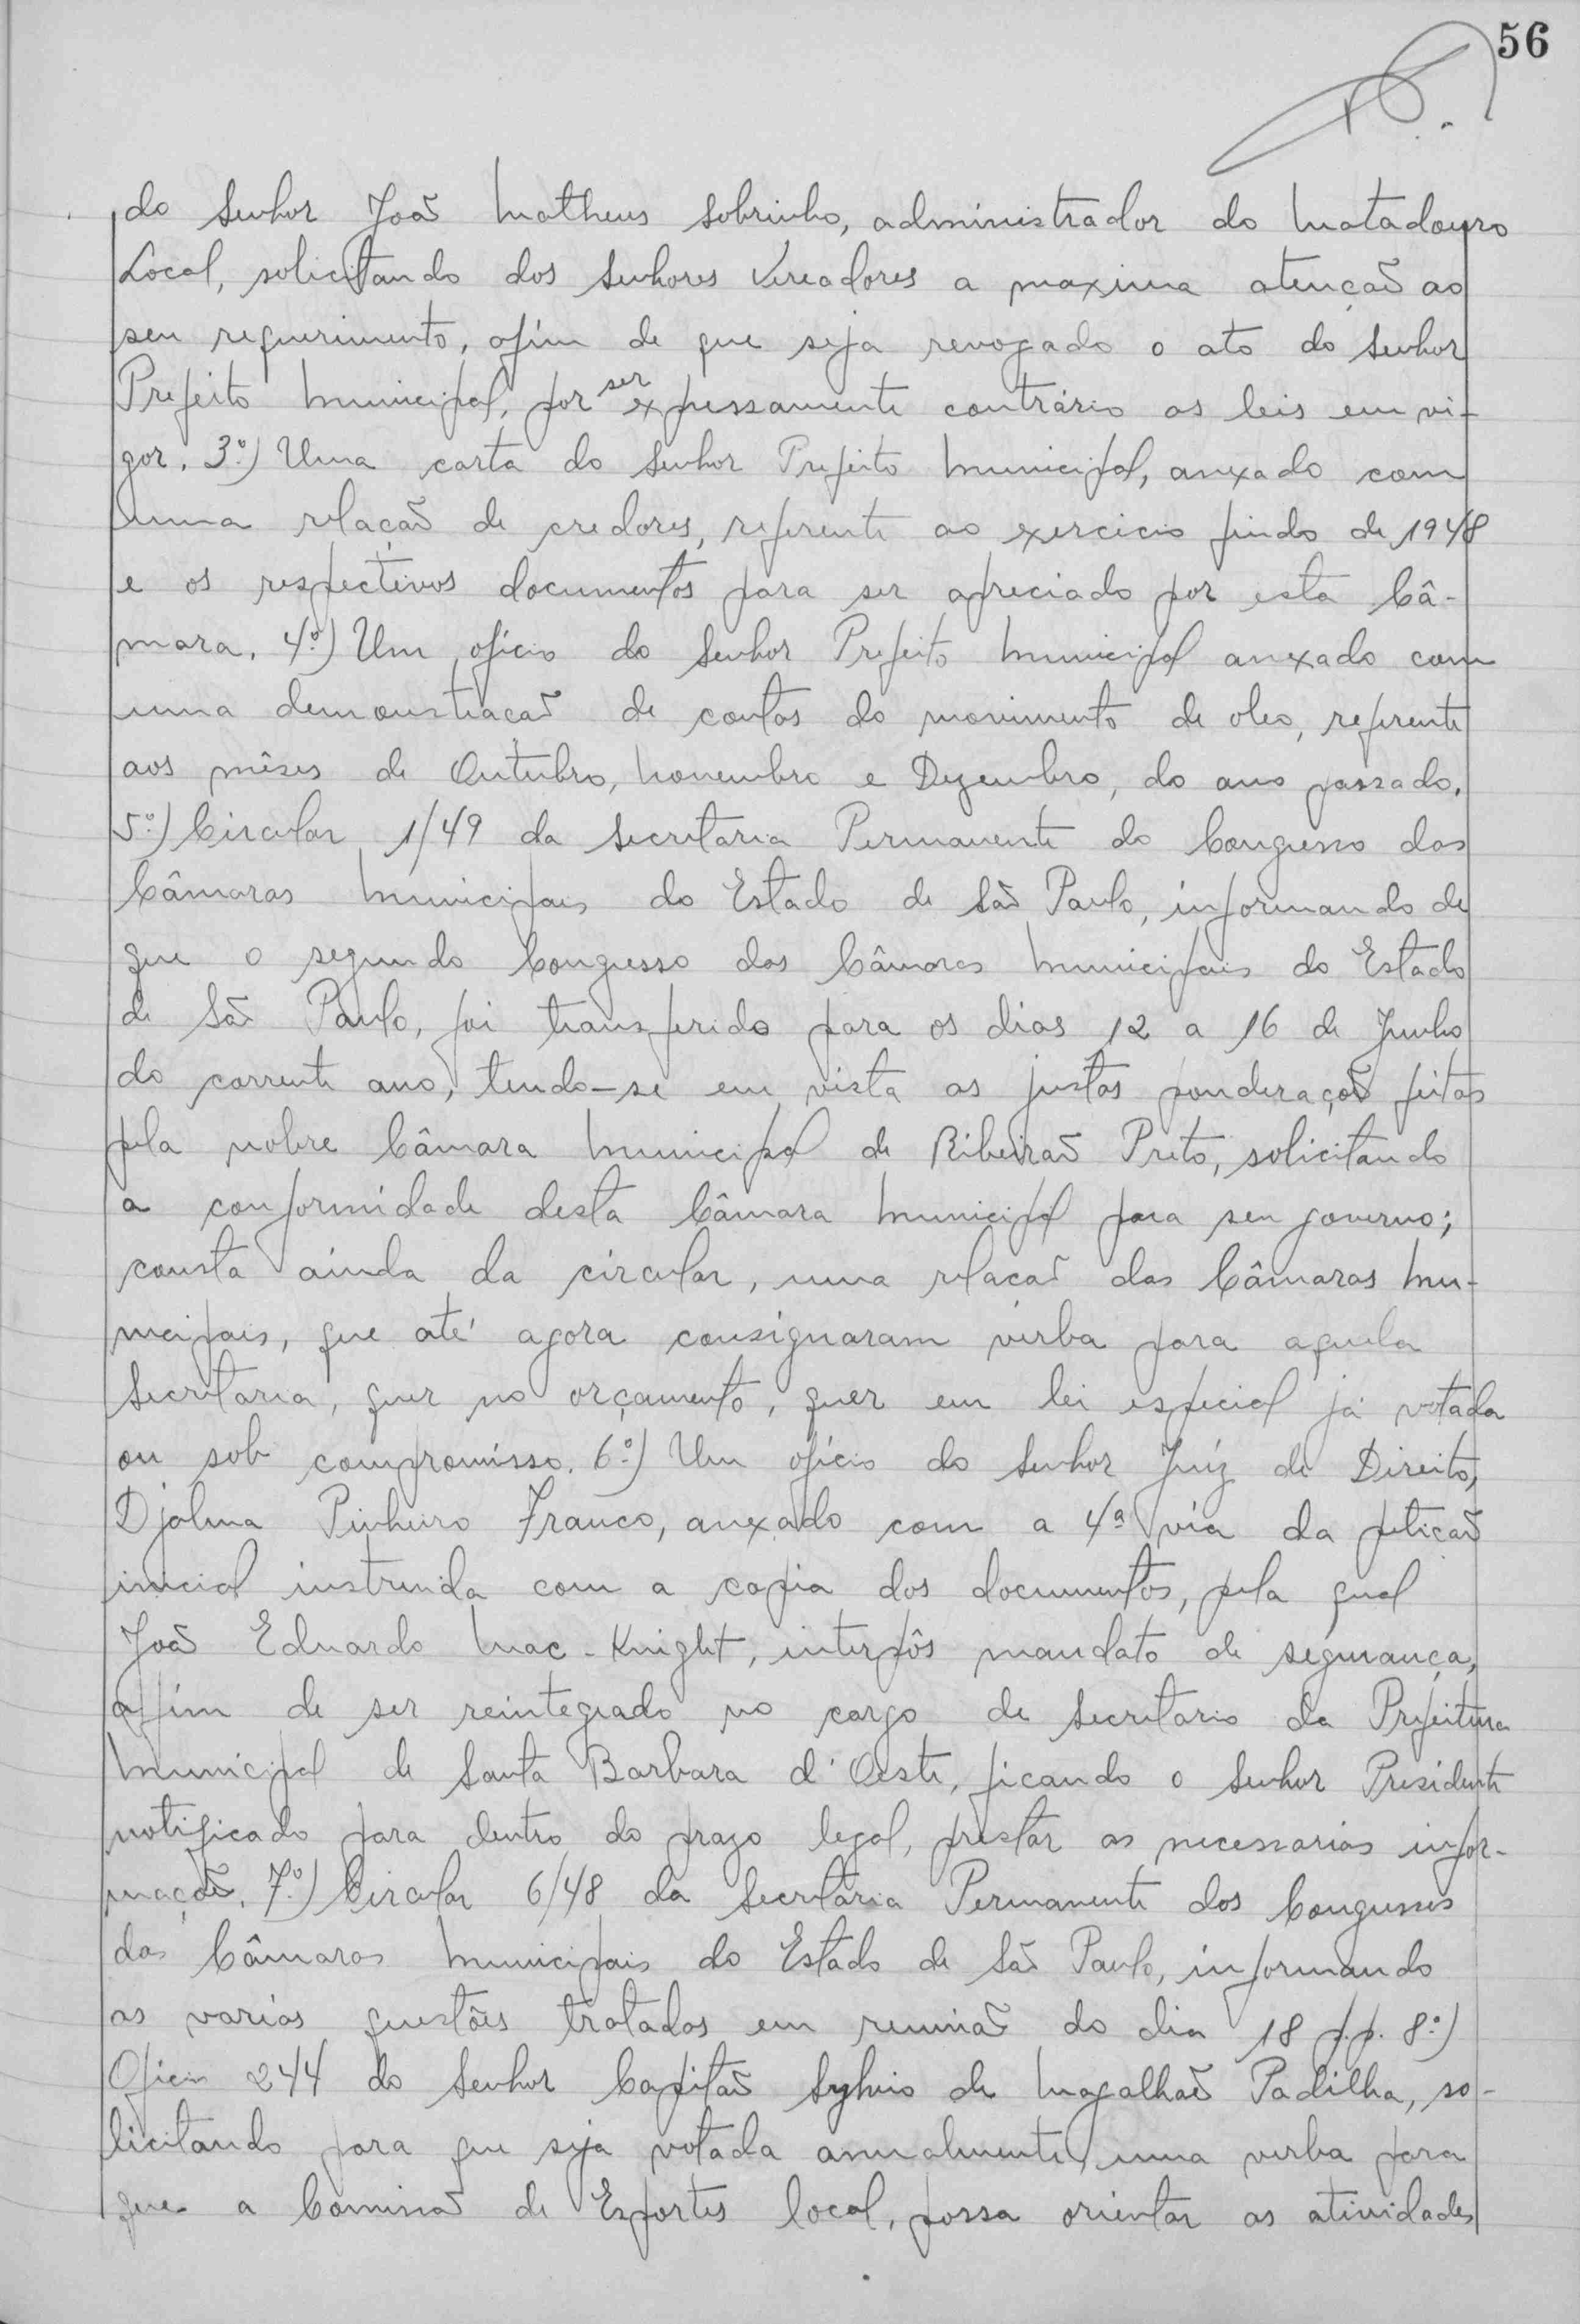 56
do Senhor João Matheus Sobrinho, administrador do Matadouro
Local, solicitando dos Senhores Vereadores a maxima atenção ao
seu requerimento, afim de que seja revogado o ato do Senhor
Prefeito Municipal, por ser expessamente contrário as leis em vi-
gor. 3º.) Uma carta do Senhor Prefeito Municipal, anexado com
uma relação de credores, referente ao exercicio findo de 1948
e os respectivos documentos para ser apreciado por esta Câ-
mara. 4º.) Um oficio do Senhor Prefeito Municipal anexado com
uma demonstração de contas do movimento de oleo, referente
aos mêses de Outubro, Novembro e Dezembro, do ano passado.
5º.) Circular 1/49 da Secretaria Permanente do Congresso das
Câmaras Municipais do Estado de São Paulo, informando de
que o segundo Congresso das Câmaras Municipais do Estado
de São Paulo, foi transferido para os dias 12 a 16 de Junho
do corrente ano, tendo-se em vista as justas ponderações feitas
pela nobre Câmara Municipal de Ribeirão Preto, solicitando
a conformidade desta Câmara Municipal para seu governo;
consta ainda da circular, uma relação das Câmaras Mu-
nicipais, que até agora consignaram verba para aquela
Secretaria, quer no orçamento, quer em lei especial já votada
ou sob compromisso. 6º.) Um oficio do Senhor Juíz de Direito,
Djalma Pinheiro Franco, anexado com a 4ª via da petição
inicial instruida com a copia dos documentos, pela qual
João Eduardo Mac-Knight, interpôs mandato de segurança,
afim de ser reintegrado no cargo de Secretario da Prefeitura
Municipal de Santa Barbara d'Oeste, ficando o Senhor Presidente
notificado para dentro do prazo legal, prestar as necessarias infor-
mações. 7º.) Circular 6/48 da Secretaria Permanente dos Congresses
das Câmaras Municipais do Estado de São Paulo, informando
as varias questões tratadas em reunião do dia 18 p.p. 8º.)
Oficio 244 do Senhor Capitão Sylvio de Magalhães Padilha, so-
licitando para que seja votada anualmente, uma verba para
que a Comissão de Esportes local, possa orientar as atividades